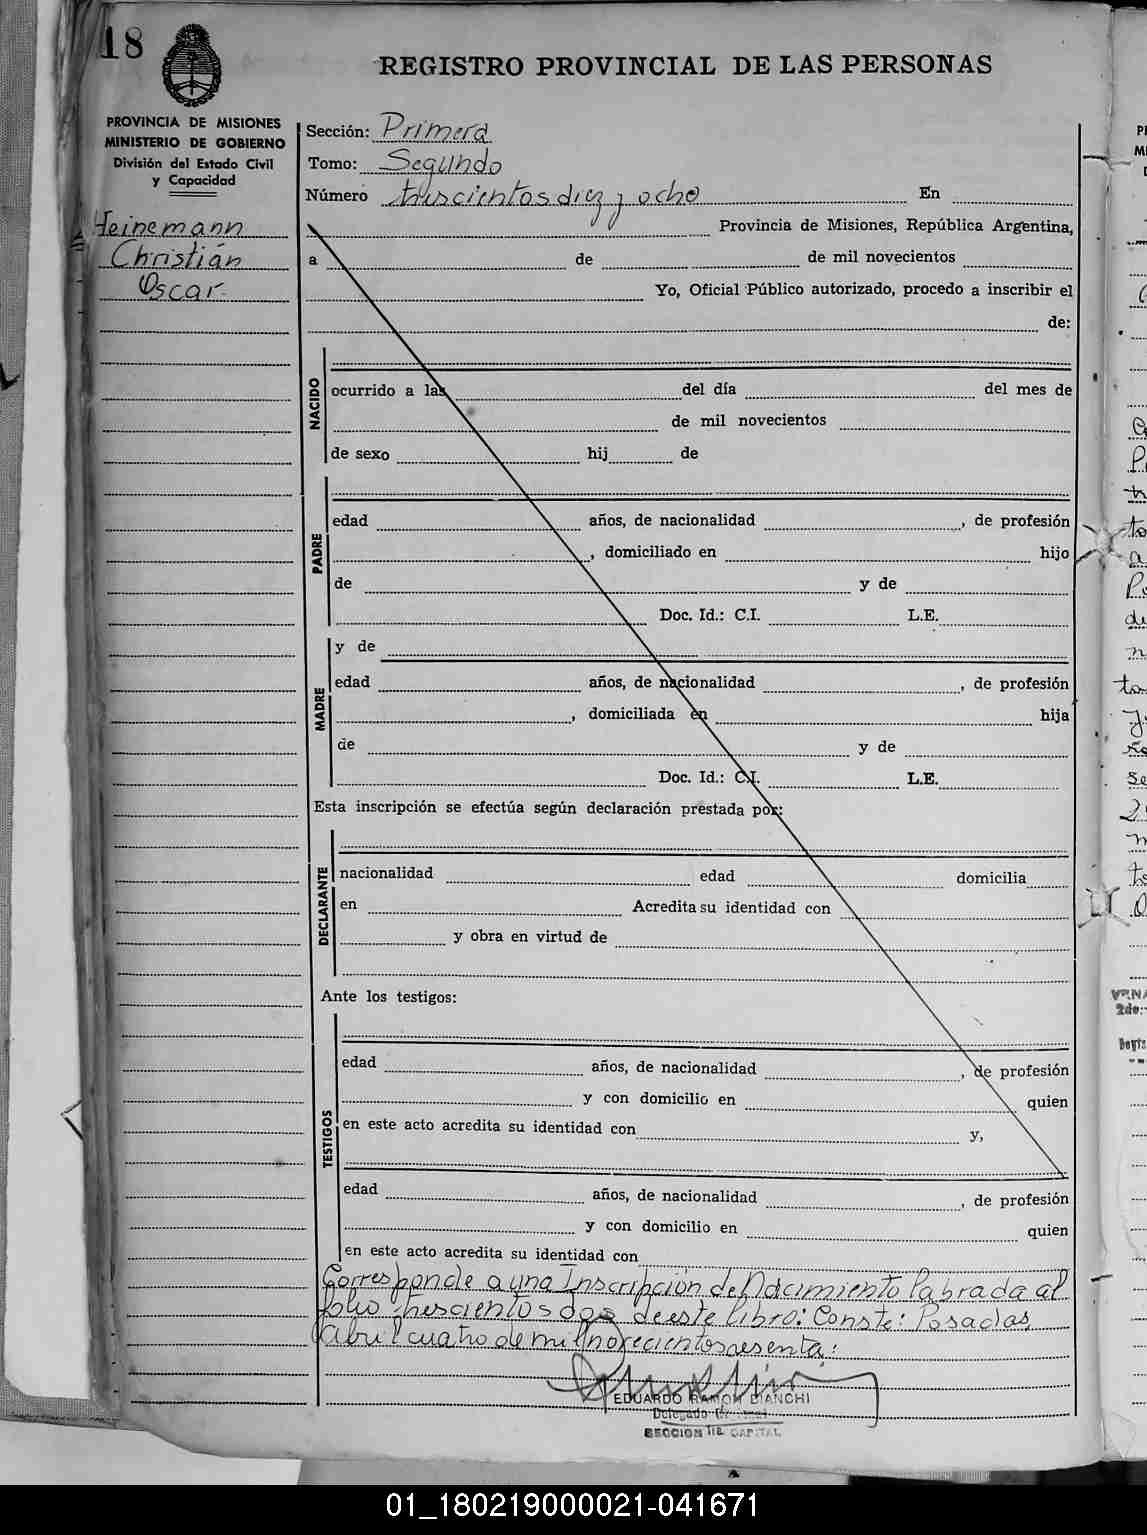 18
REGISTRO PROVINCIAL DE LAS PERSONAS
PROVINCIA DE MISIONES
MINISTERIO DE GOBIERNO
División del Estado Civil
y Capacidad
Heinemann
Christián
Oscar
Sección: Primera
Tomo: Segundo
Número trescientos diez y ocho En
Provincia de Misiones, República Argentina,
a de de mil novecientos
Yo, Oficial Público autorizado, procedo a inscribir el
de:
NACIDO
ocurrido a las del día del mes de
de mil novecientos
de sexo hij de
PADRE
edad años, de nacionalidad , de profesión
, domiciliado en hijo
de y de
Doc. Id.: C.I. L.E.
y de
MADRE
edad años, de nacionalidad , de profesión
, domiciliada en hija
de y de
Doc. Id.: C.I. L.E.
Esta inscripción se efectúa según declaración prestada por:
DECLARANTE
nacionalidad edad domicilia
en Acredita su identidad con
y obra en virtud de
Ante los testigos:
TESTIGOS
edad años, de nacionalidad , de profesión
y con domicilio en quien
en este acto acredita su identidad con y,
edad años, de nacionalidad , de profesión
y con domicilio en quien
en este acto acredita su identidad con
Corresponde a una Inscripción de Nacimiento labrada al
folio trescientos dos de este libro: Conste: Posadas,
abril cuatro de mil novecientos sesenta:
EDUARDO RAMON BIANCHI
Delegado
SECCION 1ra. CAPITAL
01_180219000021-041671